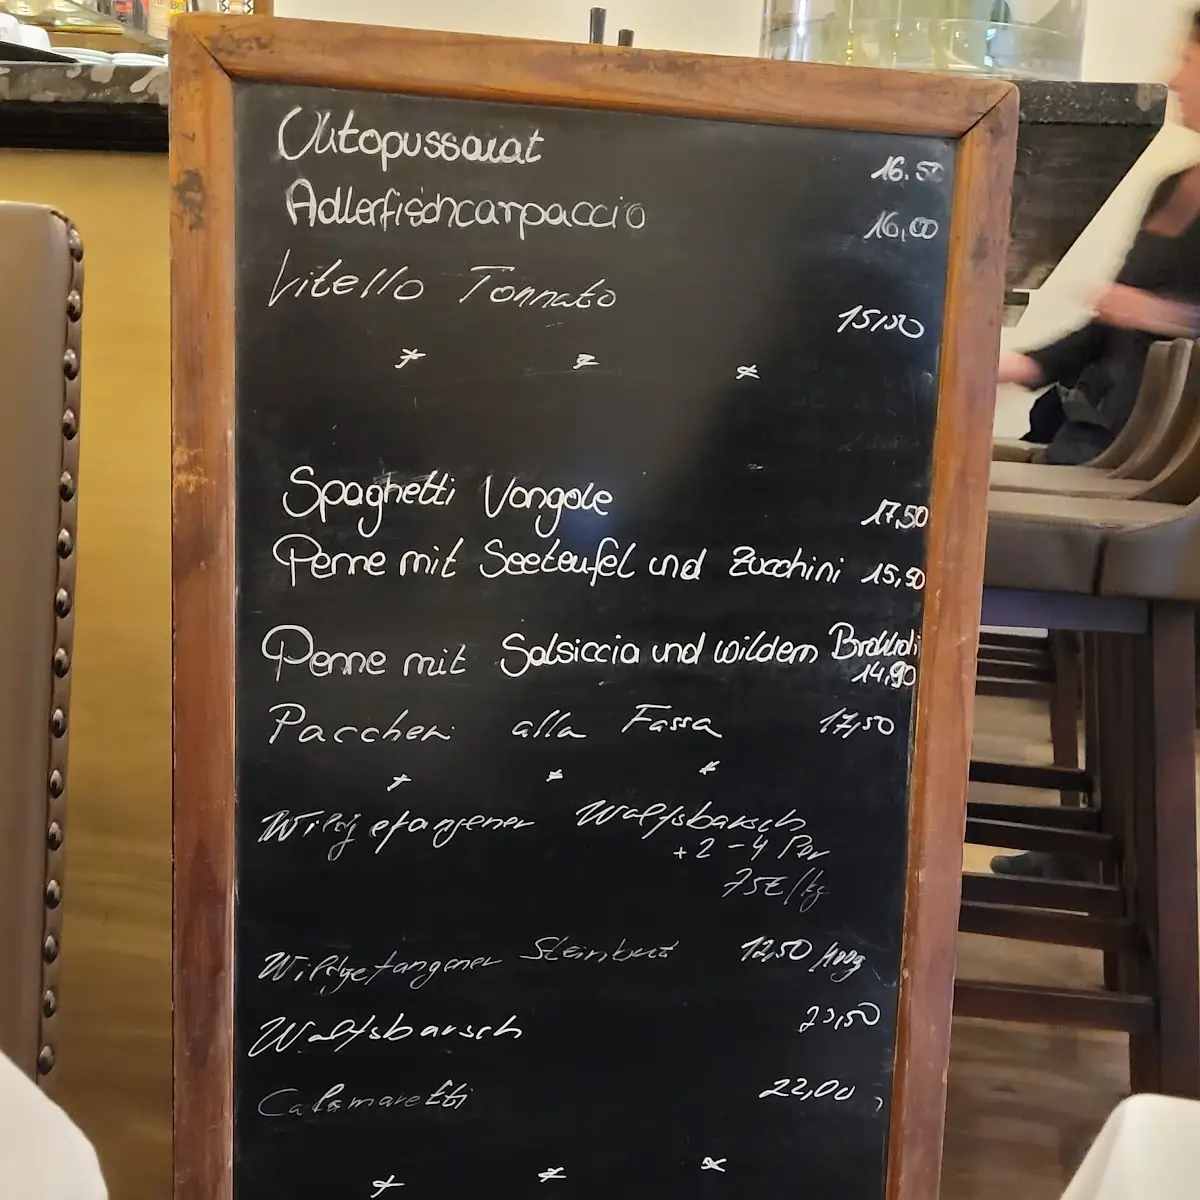 Oktopussalat 16.50
Adlerfischcarpaccio 16,00
Vitello Tonnato 15,50
* * *
Spaghetti Vongole 17,50
Penne mit Seeteufel und Zucchini 15,50
Penne mit Salsiccia und wildem Brokkoli
14,90
Paccheri alla Fassa 17,50
* * *
Wildgefangener Wolfsbarsch
+ 2 - 4 Per
75€/kg
Wildgefangener Steinbutt 12,50 /100g
Wolfsbarsch 23,50
Calamaretti 22,00
* * *